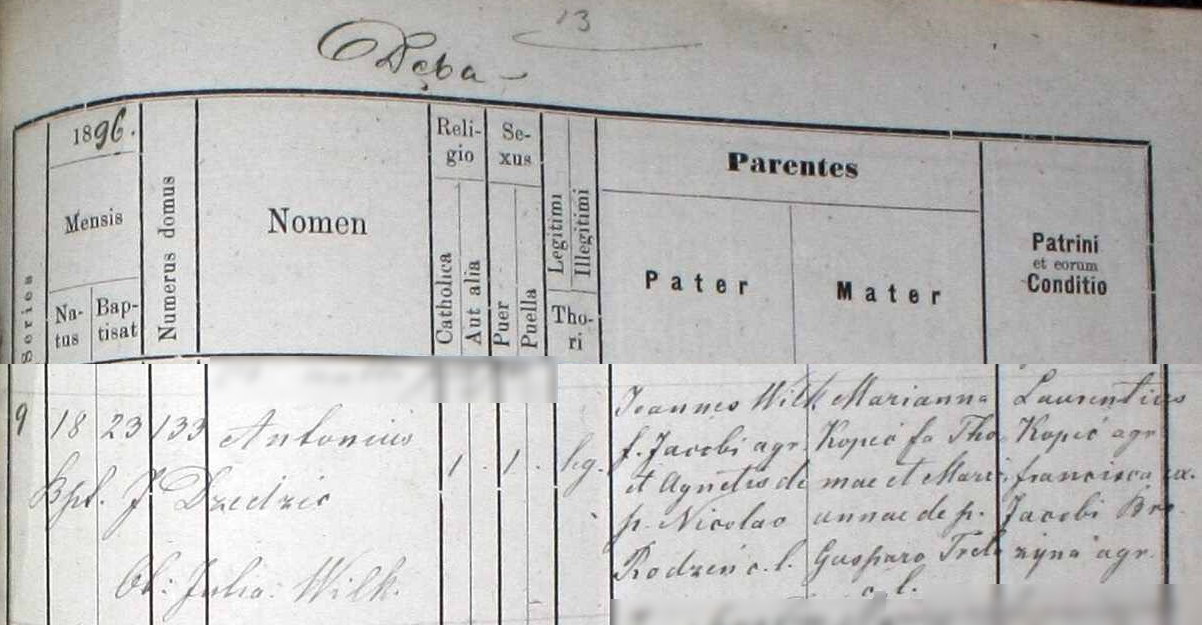 13
Dęba
1896.
Series
Mensis
Na-
tus
Bap-
tisat
Numerus domus
Nomen
Reli-
gio
Catholica
Aut alia
Se-
xus
Puer
Puella
Legitimi
Illegitimi
Tho-
ri
Parentes
Pater
Mater
Patrini
et eorum
Conditio
9 18 23 133 Antonius
Bpt. J Dzedzic
Ob: Julia Wilk.
1 . 1 . leg.
Joannes Wilk
f. Jacobi agr.
et Agnetis de
p. Nicolao
Rodzeń c. l.
Marianna
Kopeć fa Tho
mae et Mari
annae de p.
Gasparo Trela
c. l.
Laurentius
Kopeć agr
francisca ux.
Jacobi Bro
zyna agr.